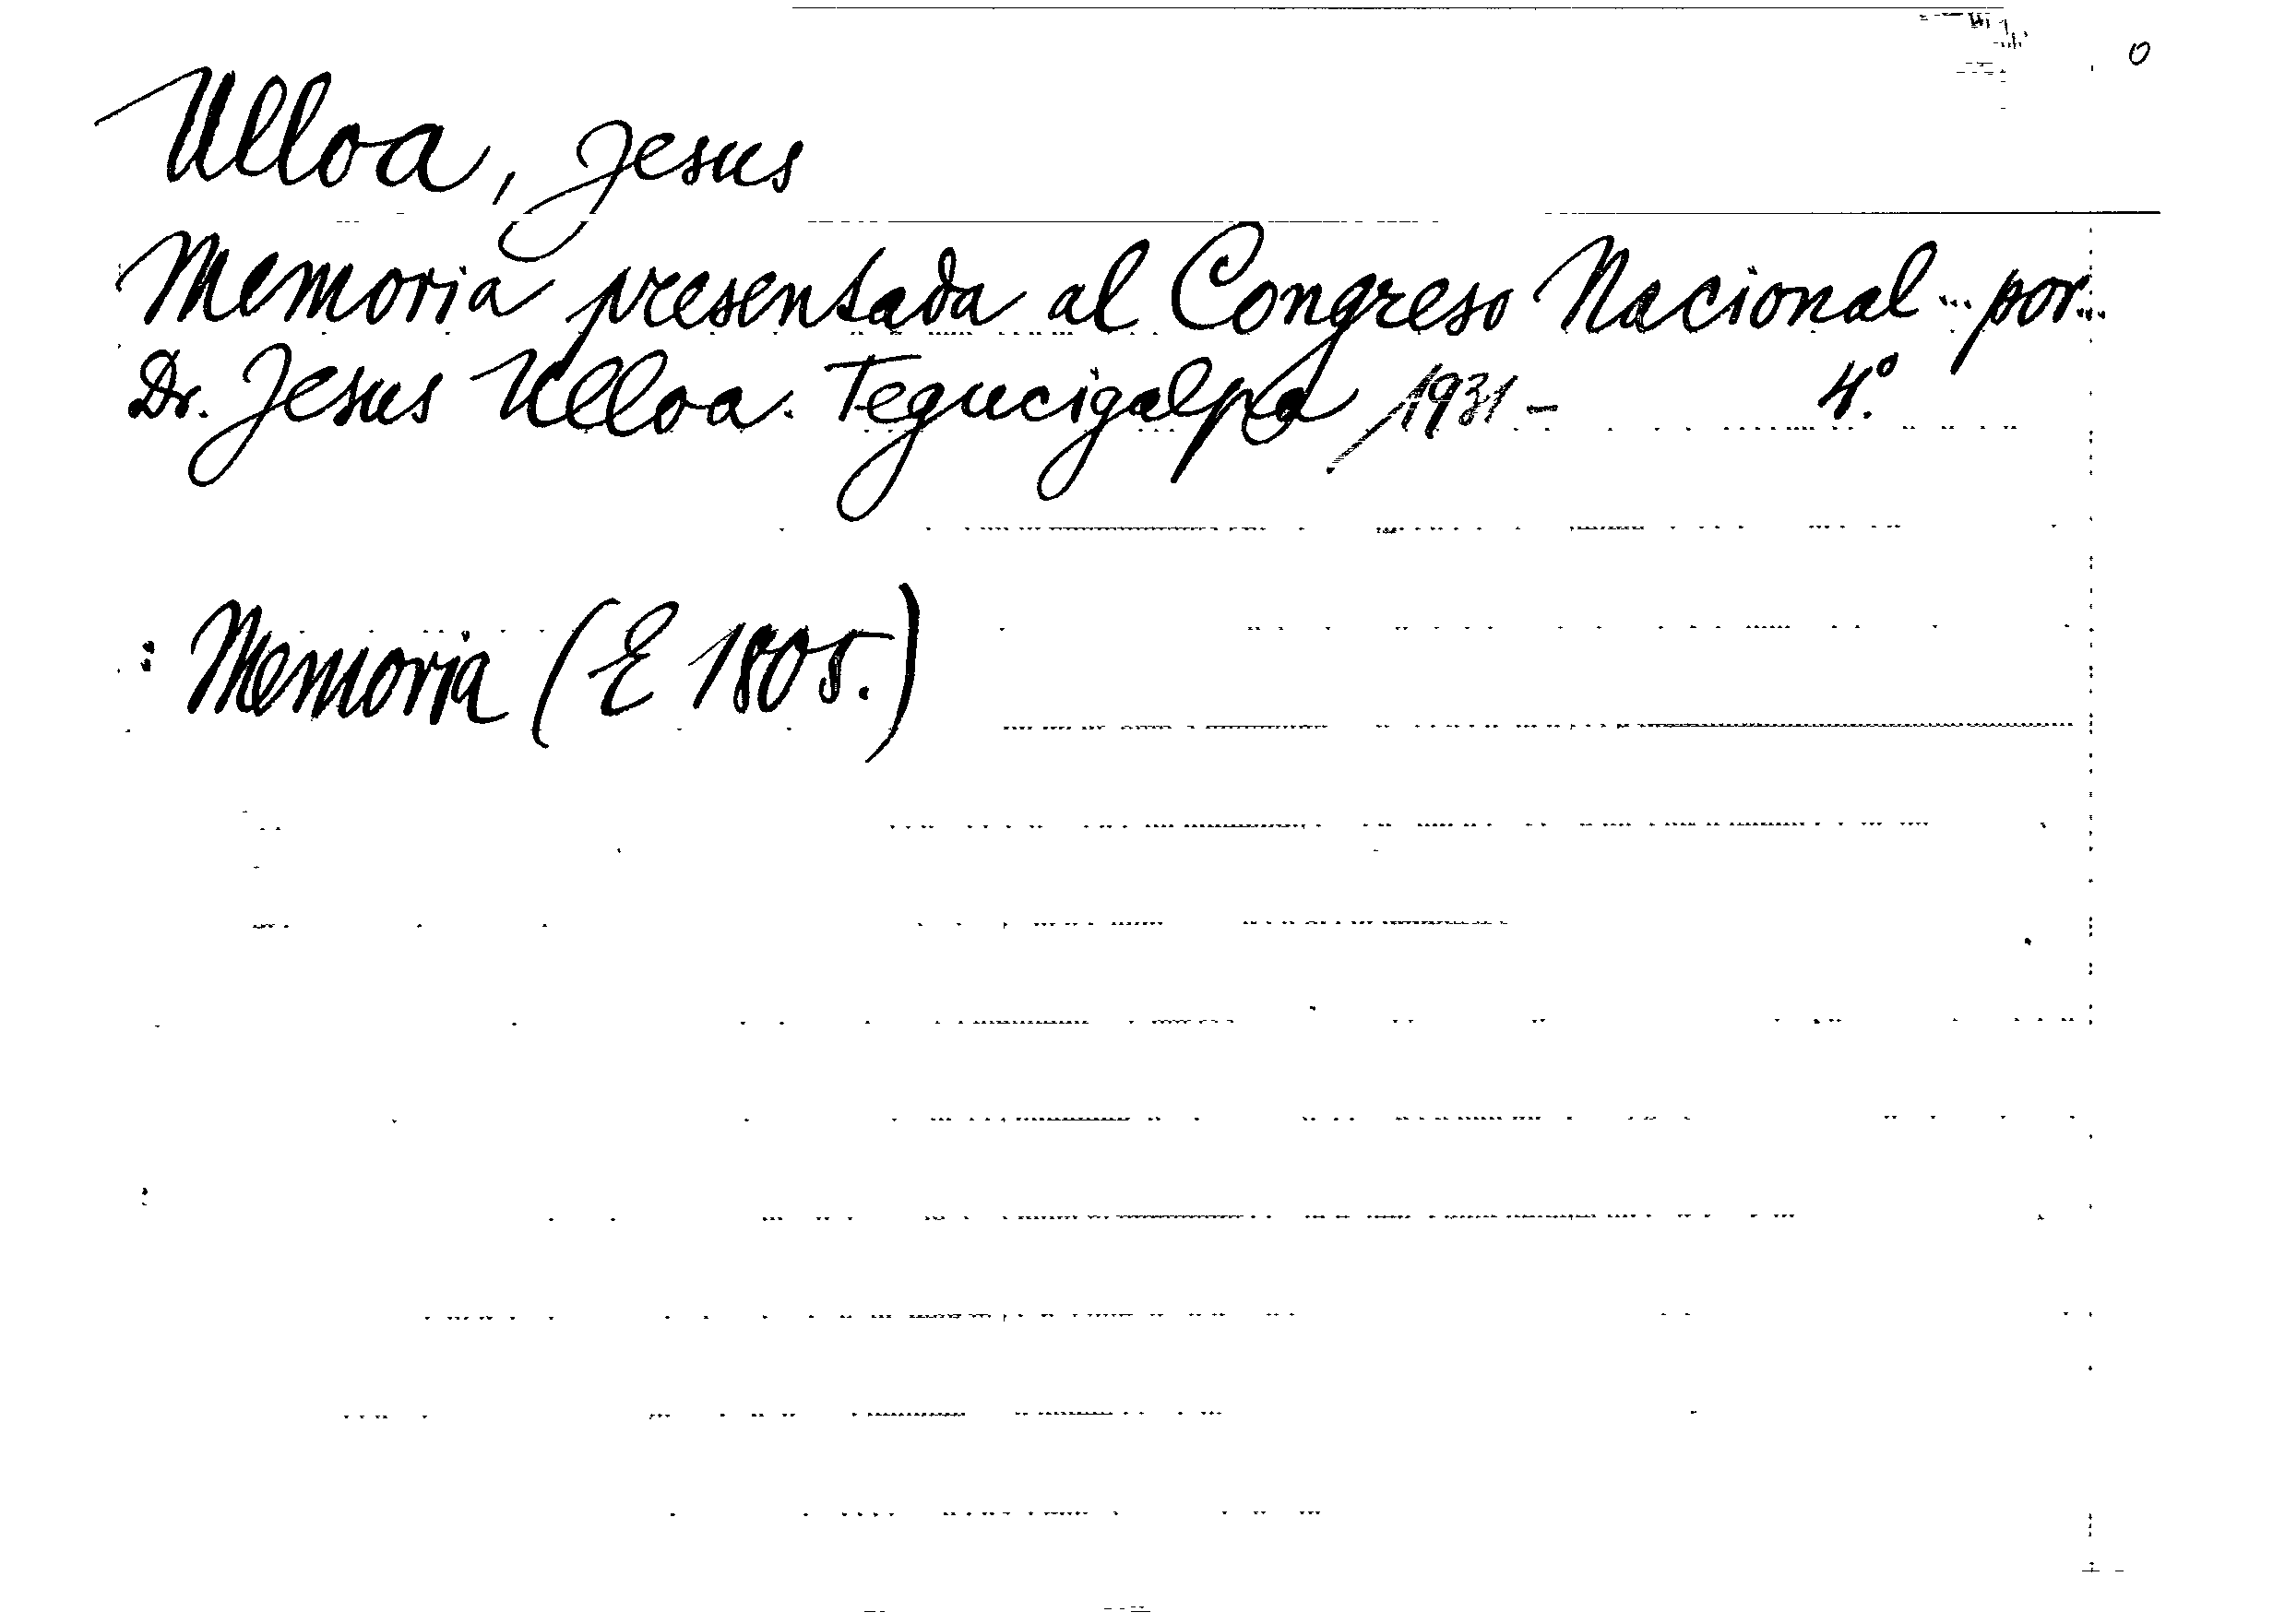 Ulloa, Jesus
Memoria presentada al Congreso Nacional ... por...
Dr. Jesus Ulloa. Tegucigalpa, 1931 - 4.º
: Memoria (E 1805.)